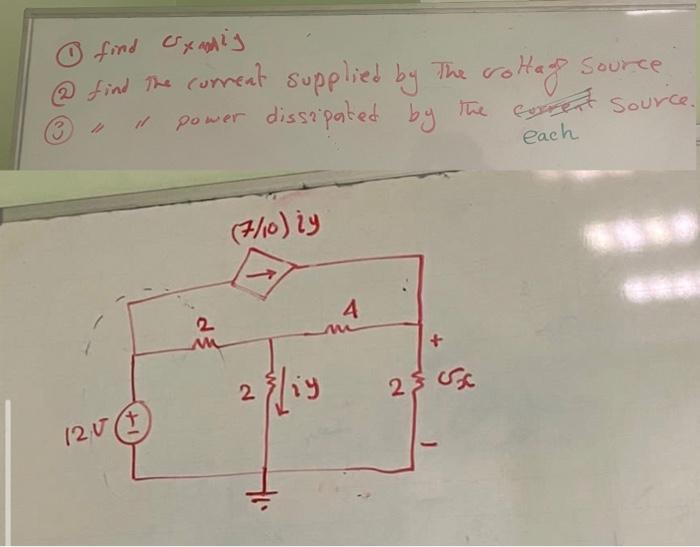 ① find υx and iy
② find The current supplied by The voltage source
③ " " power dissipated by the source.
each
(7/10) iy
2
4
+
2
iy
2
υx
12V
+
-
-